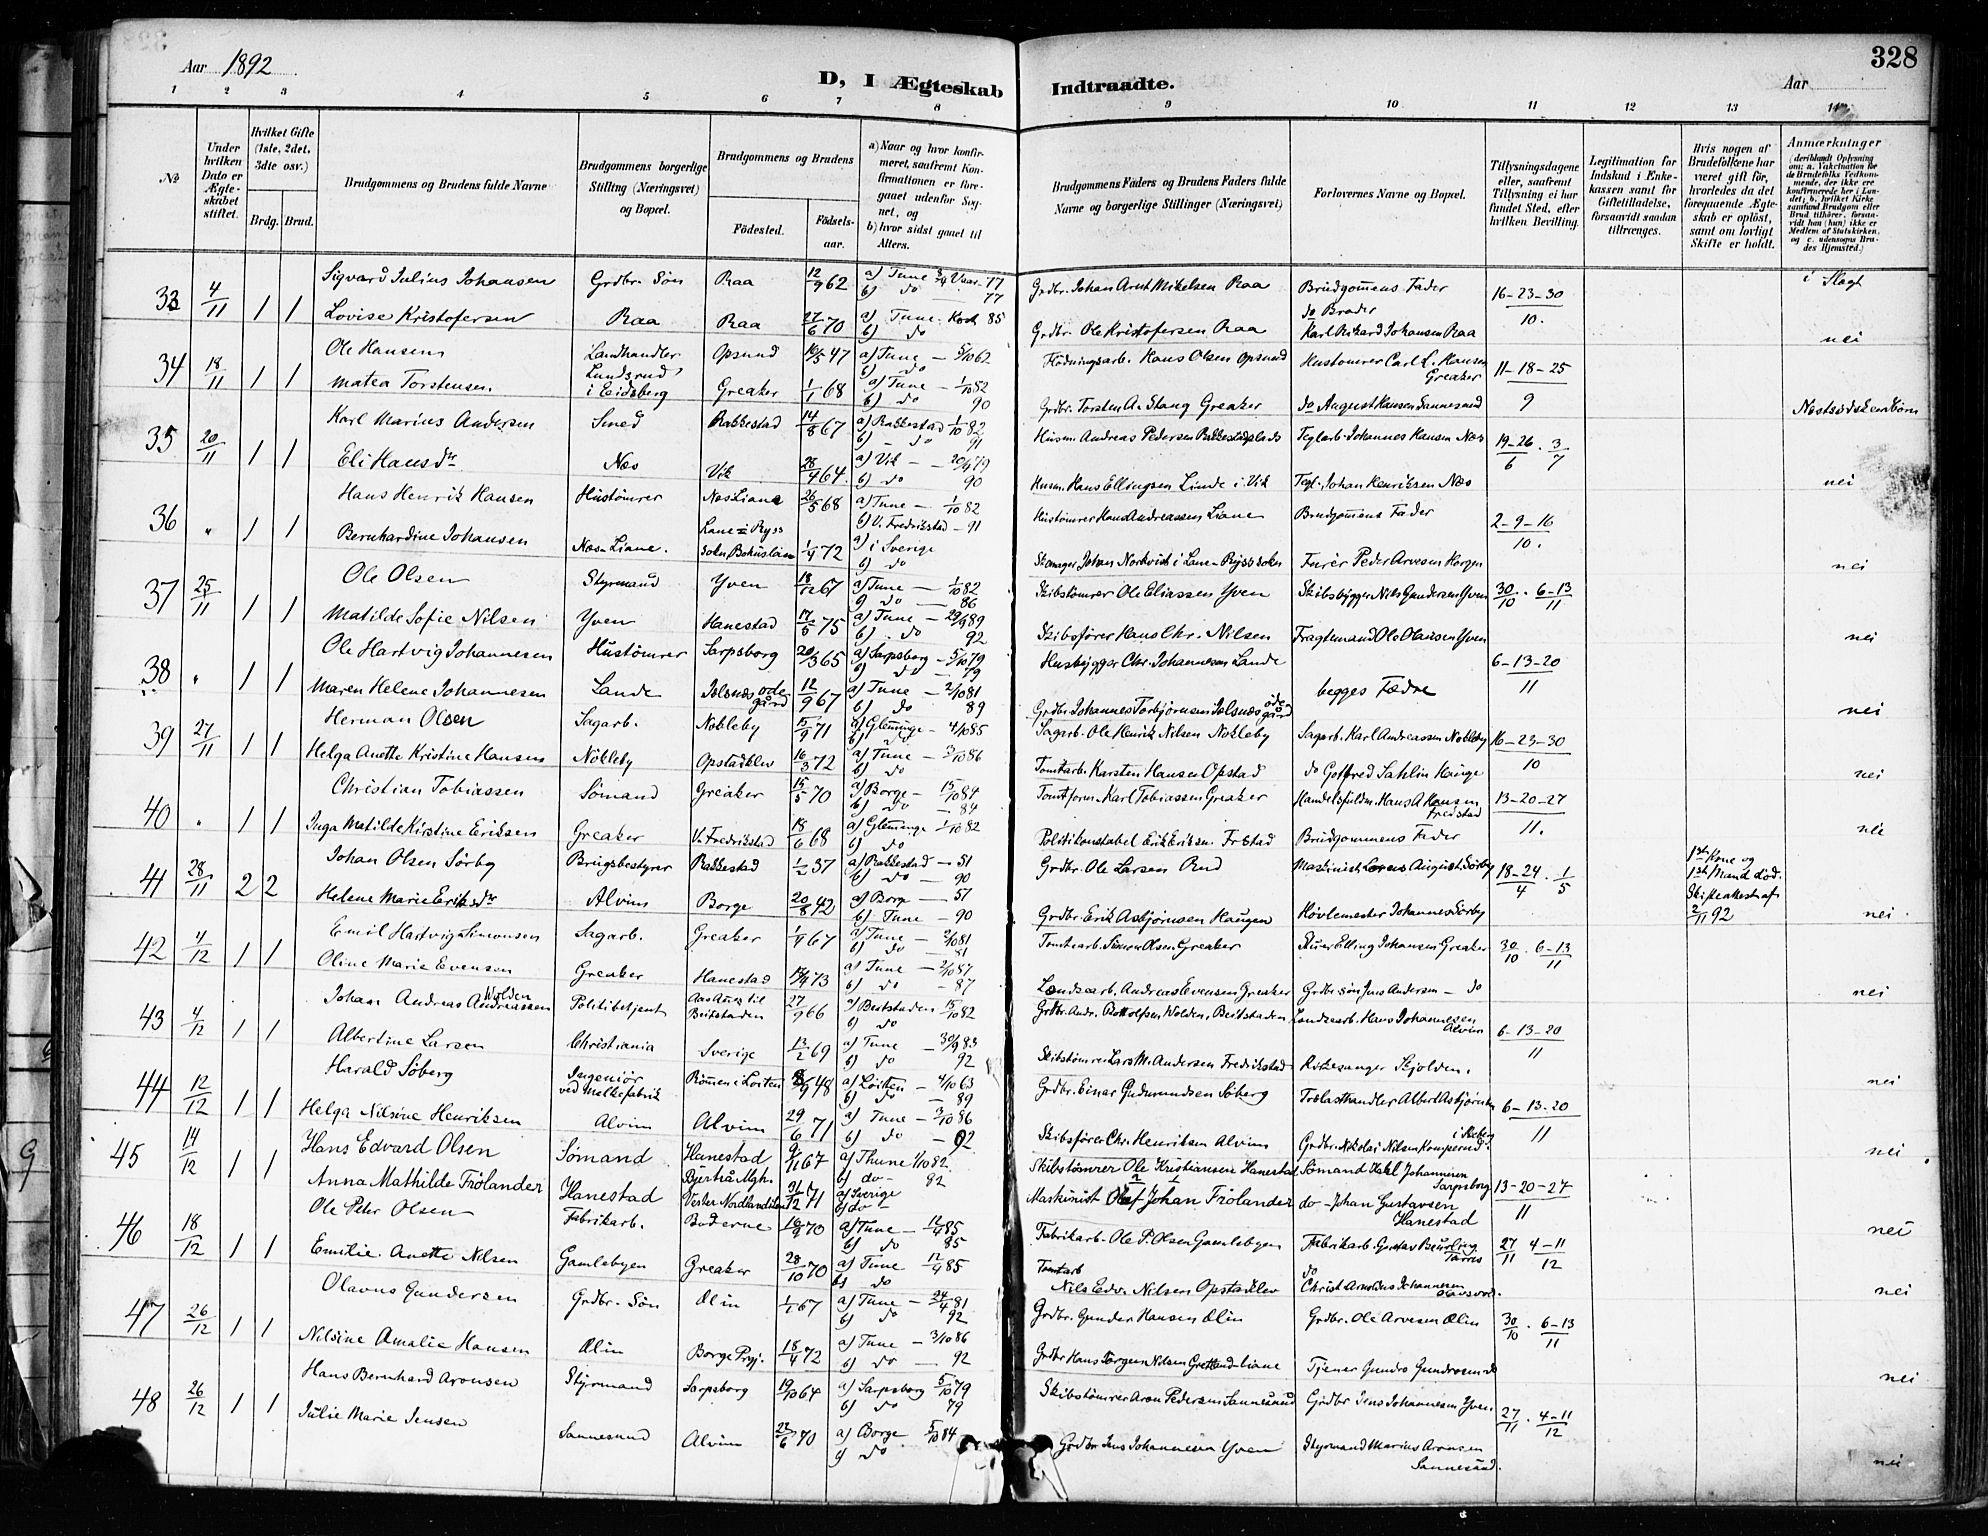 Aar 1892
D, I Ægteskab Indtraadte.
328
Aar
1 2 3 4 5 6 7 8 9 10 11 12 13 14
№
Under hvilken Dato er Ægteskabet stiftet.
Hvilket Gifte (1ste, 2det, 3dte osv.)
Brdg. Brud.
Brudgommens og Brudens fulde Navne
Brudgommens borgerlige Stilling (Næringsvei) og Bopæl.
Brudgommens og Brudens
Fødested. Fødselsaar.
a) Naar og hvor konfirmeret, saafremt Konfirmationen er foregaaet udenfor Sognet, og
b) hvor sidst gaaet til Alters.
Brudgommens Faders og Brudens Faders fulde Navne og borgerlige Stillinger (Næringsvei)
Forlovernes Navne og Bopæl.
Tillysningsdagene eller, saafremt Tillysning ei har fundet Sted, efter hvilken Bevilling.
Legitimation for Indskud i Enkekassen samt for Giftetilladelse, forsaavidt saadan tiltrænges.
Hvis nogen af Brudefolkene har været gift før, hvorledes da det foregaaende Ægteskab er opløst, samt om lovligt Skifte er holdt.
Anmærkninger
33 4/11 1 1 Sigvard Julius Johansen Grdbr. Søn Raa 12/9 62 a) Tune Vaar 77 b) do 77 Grdbr. Johan Arnt Mikelsen Raa Brudgomens Fader 16-23-30/10. i Slegt
Lovise Kristofersen Raa Raa 27/6 70 a) Tune 85 b) do Grdbr. Ole Kristofersen Raa do Broder Karl Rikard Johansen Raa nei
34 18/11 1 1 Ole Hansen Landhandler Lundsrud i Eidsberg Opsund 47 a) Tune 5/10 62 b) do Flödningsarb. Hans Olsen Opsund Hustömrer Carl L. Hansen Greaker 11-18-25/9
Matea Torstensen. Greaker 1/1 68 a) Tune 1/10 82 b) do 90 Grdbr. Torsten A. Stang Greaker do August Hansen Sannesund
35 20/11 1 1 Karl Marius Andersen Smed Rakkestad 14/8 67 a) Rakkestad 1/10 82 b) do 91 Husm. Andreas Pedersen Teglarb. Johannes Hansen Næs 19-26/6 . 3/7
Eli Hansdr Næs Vik 28/4 64 a) Vik 20/4 79 b) do 90 Husm. Hans Ellingsen Linde i Vik Tegl. Johan Henriksen Næs nei
36 " 1 1 Hans Henrik Hansen Hustömrer Næs Liane 26/5 68 a) Tune 1/10 82 b) V. Fredrikstad 91 Hustömrer Hans Andreassen Liane Brudgomens Fader 2-9-16/10.
Bernhardine Johansen Næs Liane. Lane-Ryss sokn, Bohuslæn 1/4 72 a) i Sverige b) do Skomager Johan Norkvist i Lane-Ryss sokn Furér Peder Arvesen Horgen nei
37 25/11 1 1 Ole Olsen Styrmand Yven 18/12 67 a) Tune 1/10 82 b) do 86 Skibstömrer Ole Eliassen Yven Skibsbygger Nils Gundersen Yven 30/10 . 6-13/11
Matilde Sofie Nilsen Yven Hanestad 17/5 75 a) Tune 29/9 89 b) do 92 Skibsförer Hans Chr. Nilsen Fragtemand Ole Olausen Yven nei
38 " 1 1 Ole Hartvig Johannesen Hustömrer Sarpsborg 20/3 65 a) Sarpsborg 5/10 79 b) do 79 Husbygger Chr. Johannesen Lande 6-13-20/11
Maren Helene Johannesen Lande Jelsnæs ödegård 12/9 67 a) Tune 2/10 81 b) do 89 Grdbr. Johannes Torbjörnsen Jelsnæs ödegård begges Fædre nei
39 27/11 1 1 Herman Olsen Sagarb. Nökleby 15/9 71 a) Glemminge 4/10 85 Sagarb. Ole Henrik Nilsen Nökleby Sagarb. Karl Andreassen Nökleby 16-23-30/10
Helga Anette Kristine Hansen Nökleby Opstadklev 16/3 72 a) Tune 3/10 86 b) do Tomtarb. Karsten Hansen Opstad do Gotfred Sahlin Hauge nei
40 " 1 1 Christian Tobiassen Sömand Greaker 15/5 70 a) Borge 15/10 84 b) do 84 Tomtform. Karl Tobiassen Greaker Handelsfuldm. Hans A. Hansen Fredstad 13-20-27/11.
Inga Matilde Kirstine Eriksen Greaker V. Fredrikstad 18/6 68 a) Glemminge 1/10 82 b) do Politikonstabel Erik Eriksen. Frstad Brudgommens Fader nei
41 28/11 2 2 Johan Olsen Sörby Brugsbestyrer Rakkestad 1/2 37 a) Rakkestad 51 b) do 90 Grdbr. Ole Larsen Rud Maskinist August Sörby 18-24/4 . 1/5 1ste Kone og 1ste Mand död. Skifteattest af 2/11 92
Helene Marie Eriksdr Alvim Borge 20/8 42 a) Borge 57 b) Tune 90 Grdbr. Erik Asbjörnsen Haugen Hövlemester Johannes Sörby nei.
42 4/12 1 1 Emil Hartvig Simonsen Sagarb. Greaker 67 a) Tune 2/10 81 b) do 81 Tomtearb. Simon Olsen Greaker Stuer Elling Johansen Greaker 30/10 . 6-13/11
Oline Marie Evensen Greaker Hanestad 73 a) Tune 2/10 87 b) do 87 Landsearb. Andreas Evensen Greaker Grdbr. sön Jens Andersen do nei
43 4/12 1 1 Johan Andreas Andreassen Wolden Politibetjent Beitstaden 27/9 66 a) Beitstaden 15/10 82 b) do Grdbr. Andr. Wolden, Beitstaden Landsearb. Hans Johannesen Alvim 6-13-20/11
Albertine Larsen Christiania Sverige 13/2 69 a) Tune 30/9 83 b) do 92 Skibstömrer Lars M. Andersen Fredrikstad Kirkesanger Skjolden. nei
44 12/12 1 1 Harald Söberg Ingeniör ved Melkefabrik Römen i Löiten 48 a) Löiten 4/10 63 b) do 89 Grdbr. Einar Gudmundsen Söberg Trælasthandler Albert Asbjörnsen 6-13-20/11
Helga Nilsine Henriksen Alvim Alvim 29/6 71 a) Tune 3/10 86 b) do 92 Skibsförer Chr. Henriksen Alvim Grdbr. Nikolai Nilsen i Skeberg nei
45 14/12 1 1 Hans Edvard Olsen Sömand Hanestad 67 a) Thune 1/10 82. b) do 82 Skibstömrer Ole Kristiansen Hanestad Sömand Karl Johannesen Sarpsborg 13-20-27/11
Anna Mathilde Frölander Hanestad Vester Nordlands 71 a) Sverige b) do Maskinist Olof Johan Frölander do Johan Gustavsen Hanestad nei
46 18/12 1 1 Ole Peter Olsen Fabrikarb. Buderne 16/9 70 a) Tune 12/4 85 b) do 85 Fabrikarb. Ole P. Olsen Gamlebyen Fabrikarb. Gustav Torris 27/11 4-11/12
Emilie Anette Nilsen Gamlebyen Greaker 28/10 70 a) Tune 12/4 85 b) do Tomtarb Nils Edv. Nilsen Opstadklev do Christ. Johannesen nei
47 26/12 1 1 Olavus Gundersen Grdbr. Sön Ölin 67 a) Tune 24/4 81 b) do 92 Grdbr. Gunder Hansen Ölin Grdbr. Ole Arvesen Ölin 30/10 . 6-13/11
Nilsine Amalie Hansen Ölin Borge Prgj. 18/4 72 a) Tune 3/10 86 b) do 92 Grdbr Hans Jörgen Nilsen Liane Tjener nei
48 26/12 1 1 Hans Bernhard Aronsen Styrmand Sarpsborg 19/10 64 a) Sarpsborg 5/10 79 b) do 79 Skibstömrer Aron Pedersen Sannesund Grdbr Jens Johannesen Yven. 27/11 . 4-11/12
Julie Marie Jensen Sannesund Alvim 70 a) Borge 5/10 84 b) do Grdbr Jens Johannesen Yven Styrmand Marius Aronsen Sannesund. nei